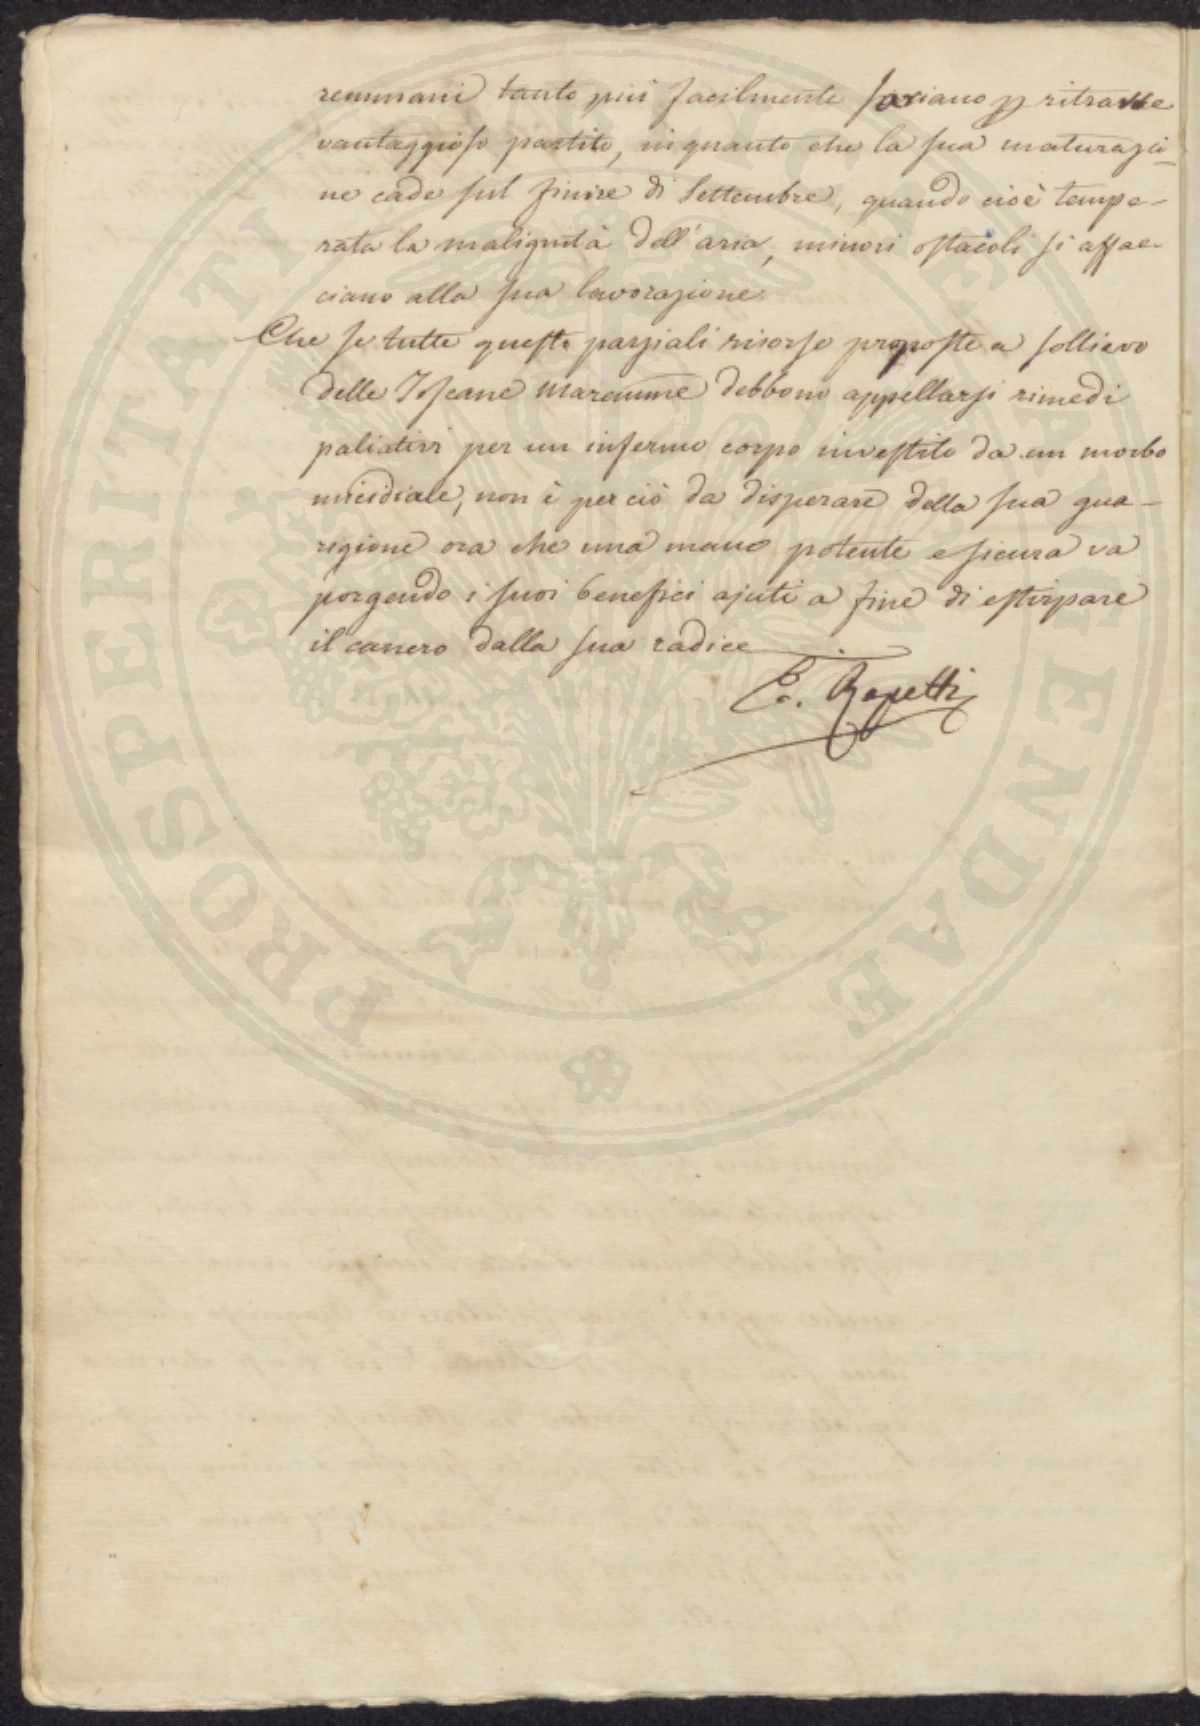 remmani tanto più facilmente sariano p ritrarre
vantaggioso partito, in quanto che la sua maturazio-
ne cade sul finire di Settembre, quando cioè tempe-
rata la malignità dell'aria, minori ostacoli si affac-
ciano alla sua lavorazione.
Che se tutte queste parziali risorse proposte a sollievo
delle Toscane Maremme debbono appellarsi rimedi
paliativi per un infermo corpo investito da un morbo
micidiale, non è per ciò da disperare della sua gua-
rigione ora che una mano potente e sicura va
porgendo i suoi benefici ajuti a fine di estirpare
il cancro dalla sua radice
E. Repetti
PROSPERITATI PUBLICAE AUGENDAE